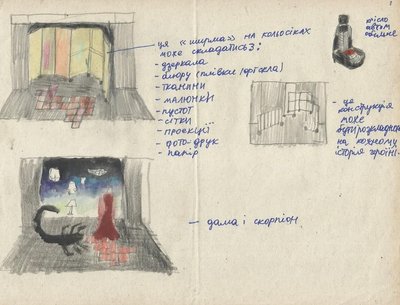 ця «ширма» на колъосіках
може складатись з:
- дзеркала
- (плівки
- тканини
- малюнки
- пустот
- сітки
- проекції
- фото-друк
- папір
крісло
автом
обємне
- ця
конструкція
може
бути
на кожному
історія героїні.
- дама і скорпіон
1